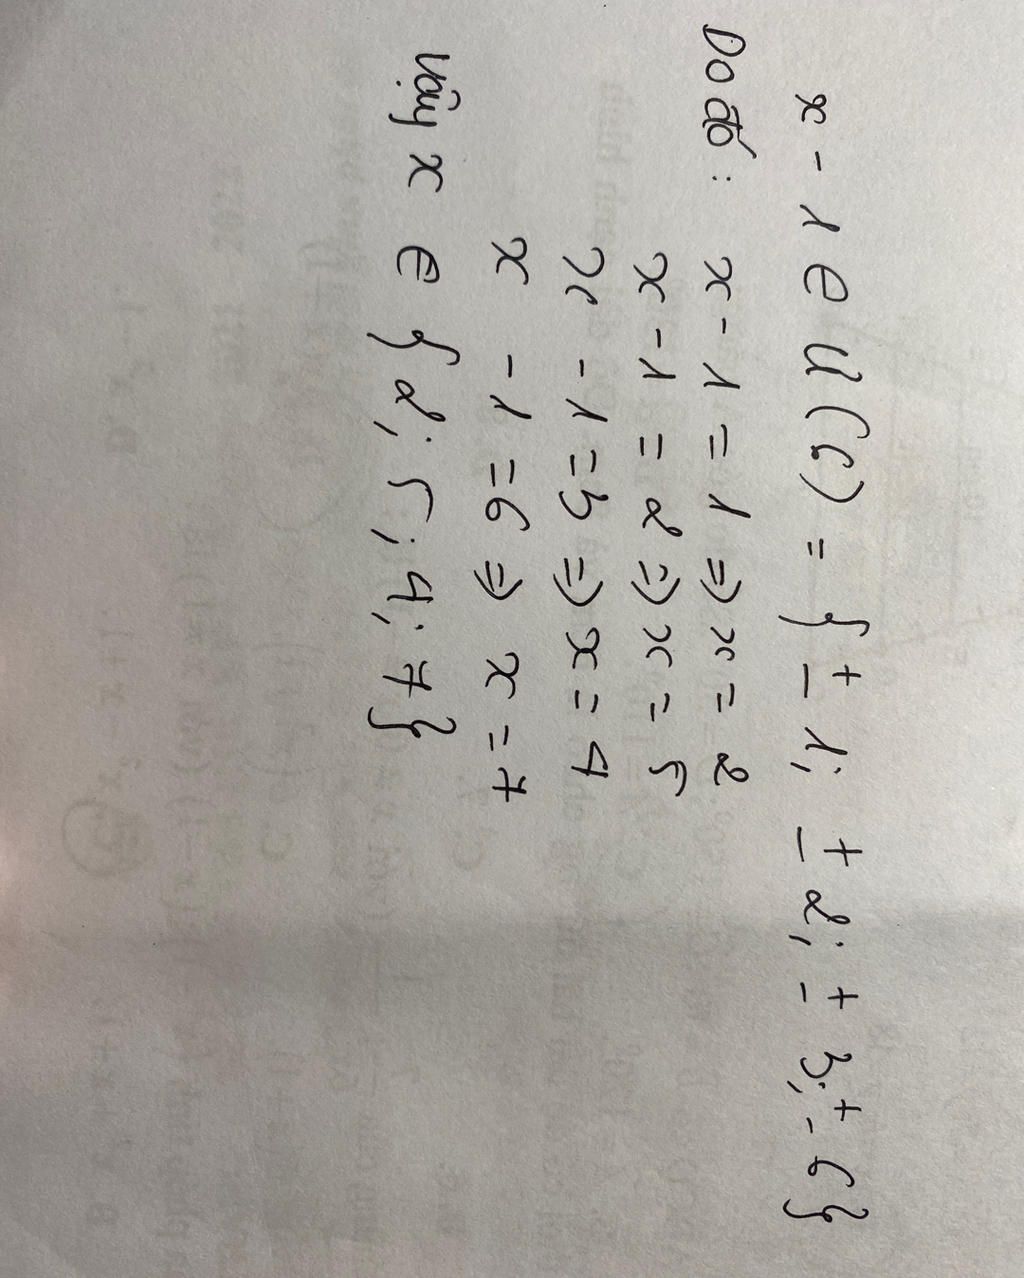 x - 1 ∈ Ư(6) = {± 1; ± 2; ± 3; ± 6}
Do đó: x - 1 = 1 => x = 2
x - 1 = 2 => x = 5
x - 1 = 3 => x = 4
x - 1 = 6 => x = 7
Vậy x ∈ {2; 5; 4; 7}